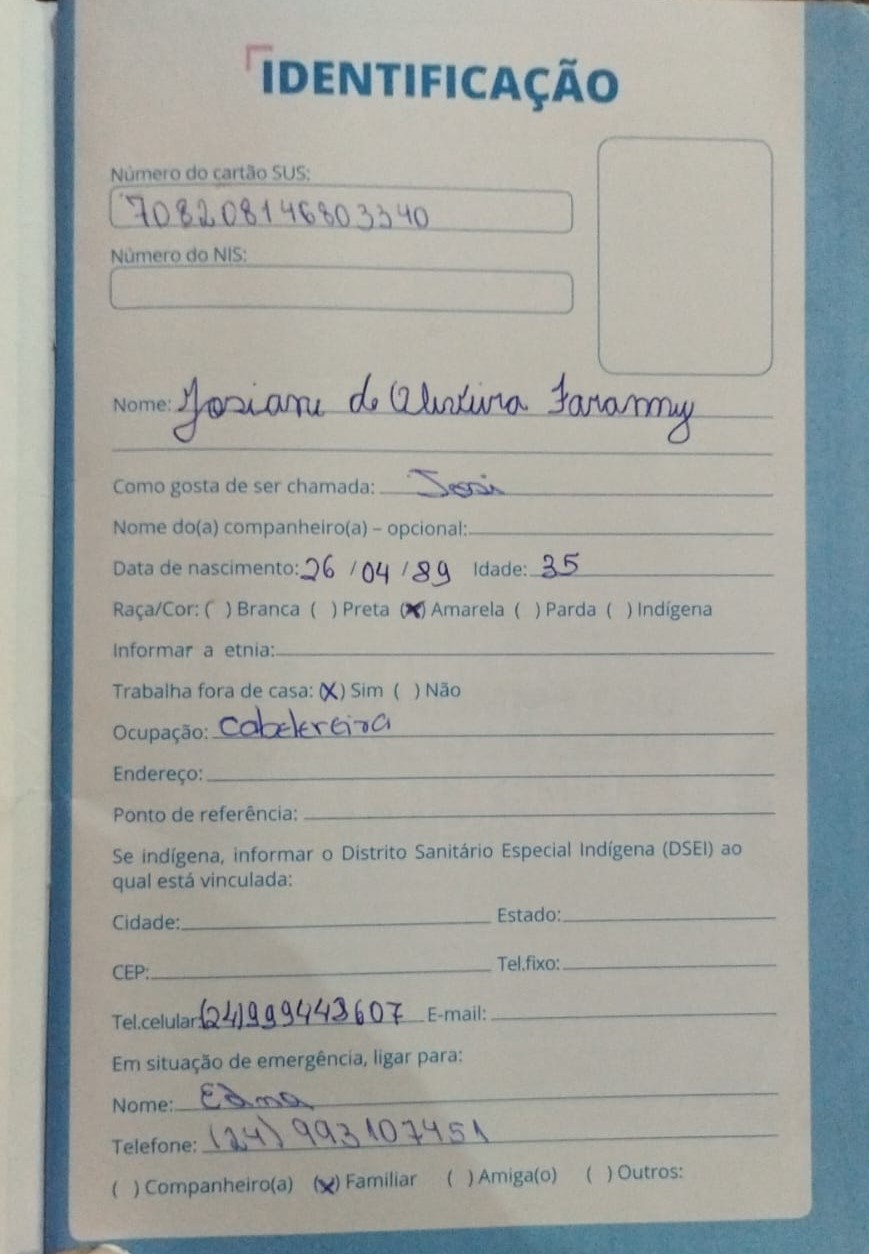 IDENTIFICAÇÃO
Número do cartão SUS:
708208146803340
Número do NIS:
Nome: Josiane de Oliveira Faranny
Como gosta de ser chamada: Josi
Nome do(a) companheiro(a) – opcional:
Data de nascimento: 26 / 04 / 89 Idade: 35
Raça/Cor: ( ) Branca ( ) Preta (X) Amarela ( ) Parda ( ) Indígena
Informar a etnia:
Trabalha fora de casa: (X) Sim ( ) Não
Ocupação: Cabelereira
Endereço:
Ponto de referência:
Se indígena, informar o Distrito Sanitário Especial Indígena (DSEI) ao
qual está vinculada:
Cidade: Estado:
CEP: Tel.fixo:
Tel.celular: (24)999443607 E-mail:
Em situação de emergência, ligar para:
Nome: Edna
Telefone: (24) 993107451
( ) Companheiro(a) (X) Familiar ( ) Amiga(o) ( ) Outros: